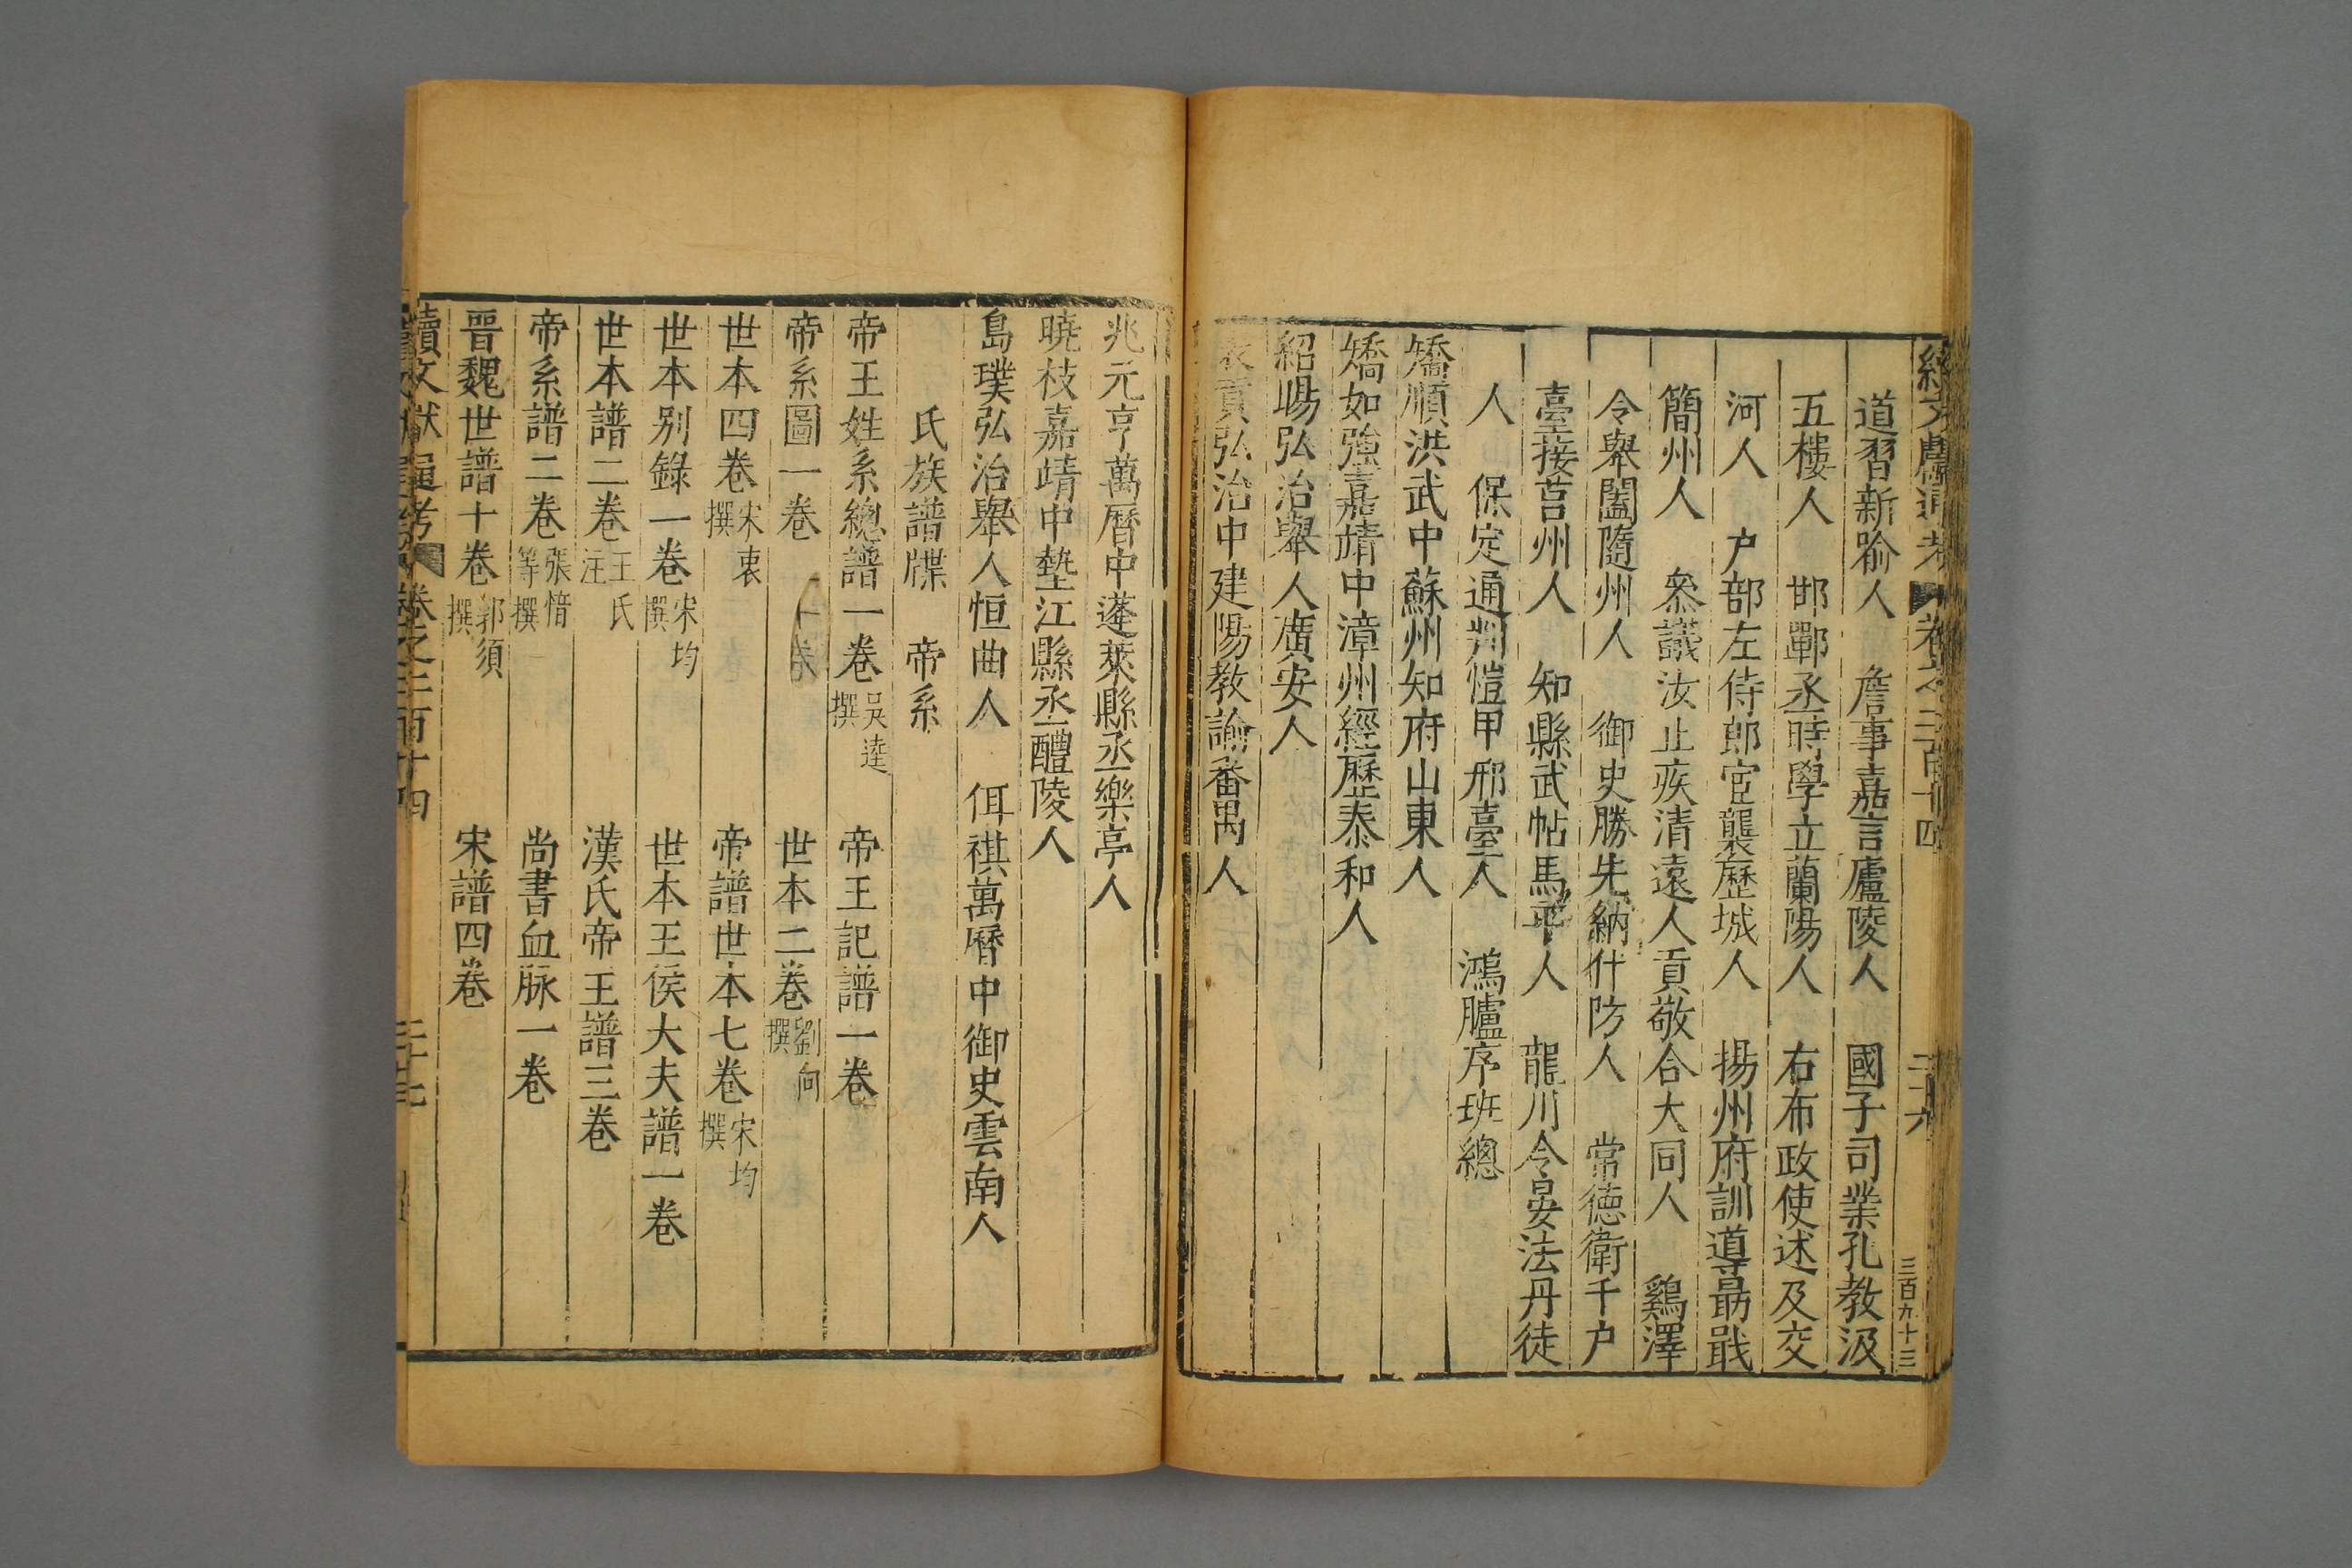 續文獻通考 卷之二百十四 二十六 三百九十三
道習新喻人 詹事嘉言廬陵人 國子司業孔教汲
五樓人 邯鄲丞時學立蘭陽人 右布政使述及交
河人 户部左侍郎宦襲歷城人 揚州府訓導最戢
簡州人 叅議汝止疾清遠人貢敬合大同人 鷄澤
令舉闔隨州人 御史勝先納什防人 常德衛千户
臺接莒州人 知縣武帖馬平人 龍川令晏法丹徒
人 保定通判愷甲邢臺人 鴻臚序班總
矯順洪武中蘇州知府山東人
矯如強嘉靖中漳州經歷泰和人
紹暘弘治舉人廣安人
衣貢弘治中建陽教諭番禺人
兆元亨萬曆中蓬萊縣丞樂亭人
曉枝嘉靖中墊江縣丞醴陵人
島璞弘治舉人恒曲人 佴祺萬曆中御史雲南人
氏族譜牒 帝系
帝王姓系總譜一卷 吴逵撰 帝王記譜一卷
帝系圖一卷 世本二卷 劉向撰
世本四卷 宋衷撰 帝譜世本七卷 宋均撰
世本别錄一卷 宋均撰 世本王侯大夫譜一卷
世本譜二卷 王氏注 漢氏帝王譜三卷
帝系譜二卷 張愔等撰 尚書血脉一卷
晉魏世譜十卷 郭須撰 宋譜四卷
續文獻通考 卷之二百十四 二十七